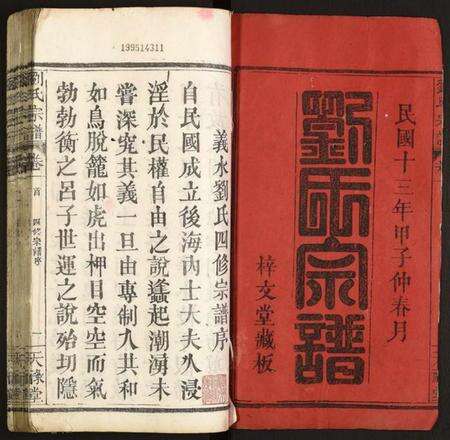 民國十三年甲子仲春月
劉氏宗譜
梓文堂藏板
139514311
義水劉氏四修宗譜序
自民國成立後海內士大夫久浸
淫於民權自由之說蠭起潮湧未
嘗深究其義一旦由專制入共和
如鳥脫籠如虎出柙目空空而氣
勃勃衡之呂子世運之說殆切隱
劉氏宗譜 卷首 四修宗譜序 一 天祿堂